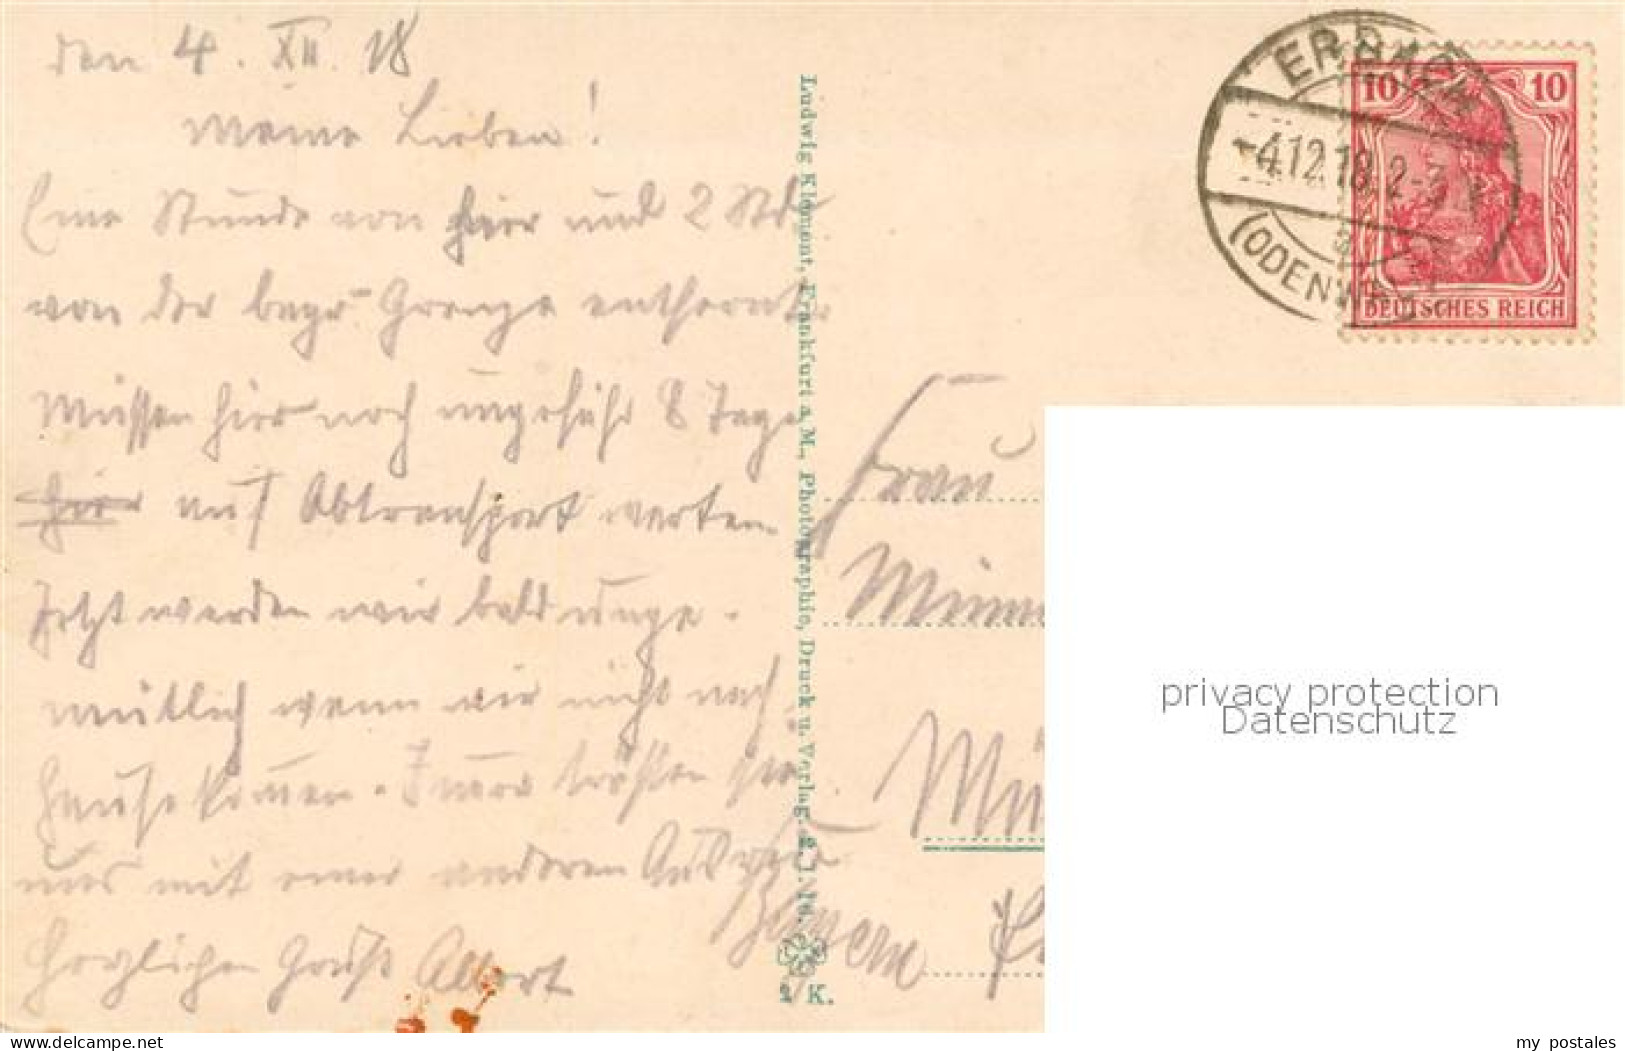 den 4. XII. 18
Meine Lieben!
Eine Stunde von hier und 2 Std
von der bayr. Grenze entfernt
müssen hier noch ungefähr 8 Tage
hier auf Abtransport warten
Jetzt werden wir bald unge-
mütlich wenn wir nicht nach
Hause kommen.
uns mit einer anderen
Herzlichen Gruß Albert
Ludwig Klement, Frankfurt a. M., Photographie, Druck u. Verlag.
K.
ERBACH
-4.12.18. 2-3
(ODENWALD)
10 10
DEUTSCHES REICH
Frau
Bayern
privacy protection
Datenschutz
www.delcampe.net
my_postales